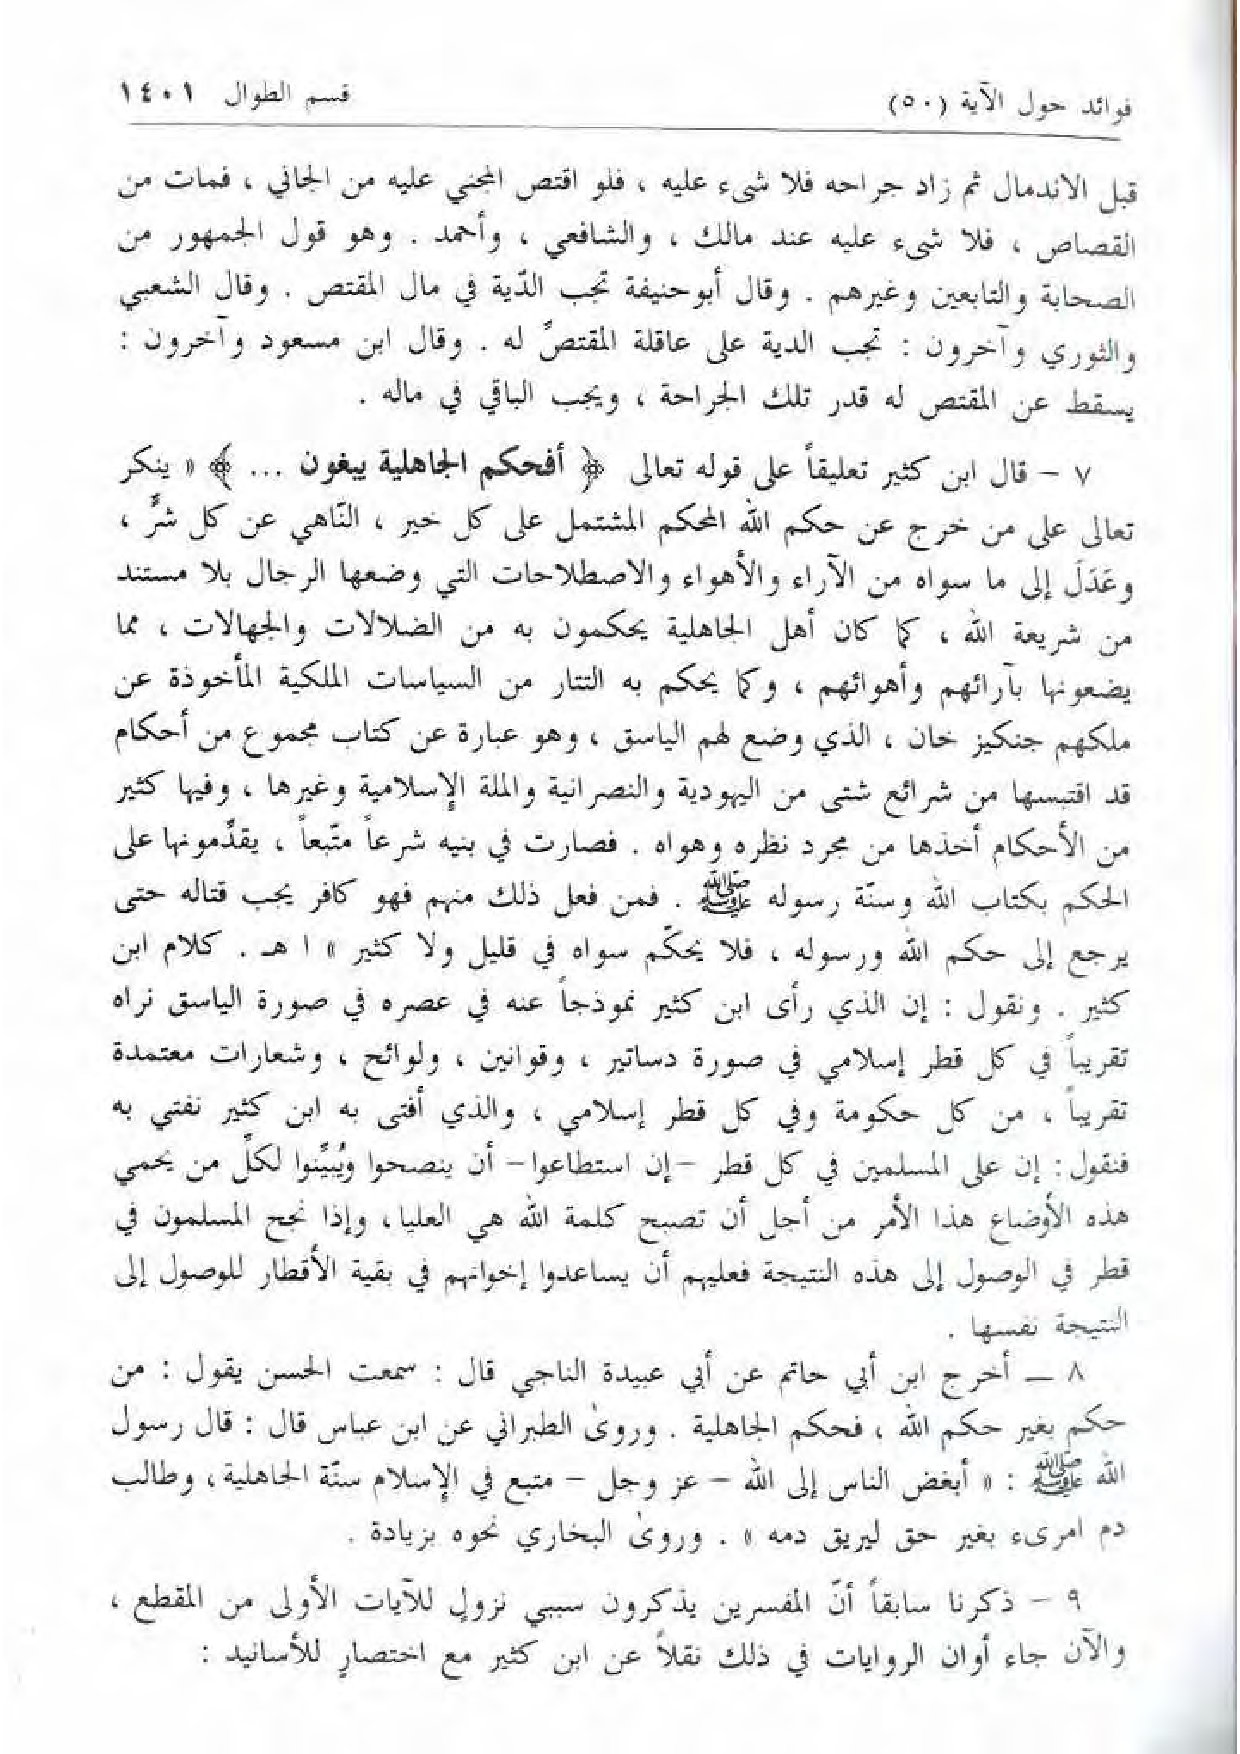 فوائد حول الآية (٥٠)
قسم الطوال ١٤٠١
قبل الاندمال ثم زاد جراحه فلا شىء عليه ، فلو اقتص المجني عليه من الجاني ، فمات من
القصاص ، فلا شىء عليه عند مالك ، والشافعي ، وأحمد . وهو قول الجمهور من
الصحابة والتابعين وغيرهم . وقال أبوحنيفة تجب الدّية في مال المقتص . وقال الشعبي
والثوري وآخرون : تجب الدية على عاقلة المقتصِّ له . وقال ابن مسعود وآخرون :
يسقط عن المقتص له قدر تلك الجراحة ، ويجب الباقي في ماله .
٧ – قال ابن كثير تعليقاً على قوله تعالى ﴿ أفحكم الجاهلية يبغون ... ﴾ « ينكر
تعالى على من خرج عن حكم الله المحكم المشتمل على كل خير ، النّاهي عن كل شرٍّ ،
وعَدَلَ إلى ما سواه من الآراء والأهواء والاصطلاحات التي وضعها الرجال بلا مستند
من شريعة الله ، كما كان أهل الجاهلية يحكمون به من الضلالات والجهالات ، مما
يضعونها بآرائهم وأهوائهم ، وكما يحكم به التتار من السياسات الملكية المأخوذة عن
ملكهم جنكيز خان ، الذي وضع لهم الياسق ، وهو عبارة عن كتاب مجموع من أحكام
قد اقتبسها من شرائع شتى من اليهودية والنصرانية والملة الإسلامية وغيرها ، وفيها كثير
من الأحكام أخذها من مجرد نظره وهواه . فصارت في بنيه شرعاً متّبعاً ، يقدِّمونها على
الحكم بكتاب الله وسنّة رسوله ﷺ . فمن فعل ذلك منهم فهو كافر يجب قتاله حتى
يرجع إلى حكم الله ورسوله ، فلا يحكّم سواه في قليل ولا كثير » ا هـ . كلام ابن
كثير . ونقول : إن الذي رأى ابن كثير نموذجاً عنه في عصره في صورة الياسق نراه
تقريباً في كل قطر إسلامي في صورة دساتير ، وقوانين ، ولوائح ، وشعارات معتمدة
تقريباً ، من كل حكومة وفي كل قطر إسلامي ، والذي أفتى به ابن كثير نفتي به
فنقول : إن على المسلمين في كل قطر –إن استطاعوا– أن ينصحوا ويُبيِّنوا لكلِّ من يحمي
هذه الأوضاع هذا الأمر من أجل أن تصبح كلمة الله هي العليا ، وإذا نجح المسلمون في
قطر في الوصول إلى هذه النتيجة فعليهم أن يساعدوا إخوانهم في بقية الأقطار للوصول إلى
النتيجة نفسها .
٨ — أخرج ابن أبي حاتم عن أبي عبيدة الناجي قال : سمعت الحسن يقول : من
حكم بغير حكم الله ، فحكم الجاهلية . وروىٰ الطبراني عن ابن عباس قال : قال رسول
الله ﷺ : « أبغض الناس إلى الله – عز وجل – متبع في الإسلام سنّة الجاهلية ، وطالب
دم امرىء بغير حق ليريق دمه » . وروىٰ البخاري نحوه بزيادة .
٩ – ذكرنا سابقاً أنّ المفسرين يذكرون سببي نزولٍ للآيات الأولى من المقطع ،
والآن جاء أوان الروايات في ذلك نقلاً عن ابن كثير مع اختصارٍ للأسانيد :